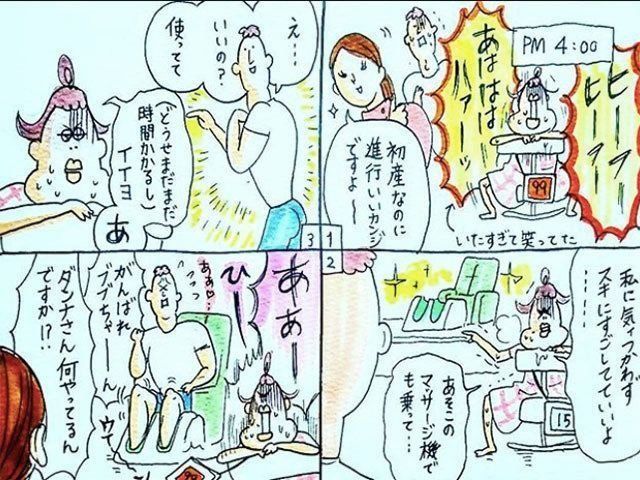 PM 4:00
ヒーフー
ヒーフー
あはははは
ハァーッ
初産なのに
進行いいカンジ
ですよ〜
99
いたすぎて笑ってた
1
2
私に気ィつかわず
スキにすごしてていいよ
……
あそこの
マッサージ機で
も乗って…
15
3
え…
いいの?
使ってて
(どうせまだまだ
時間かかるし)
イイヨ
あ
ああー
ひー
あぁ〜…
がんばれ
ブブちゃーん
ウィ〜
ダンナさん何やってるん
ですか!?